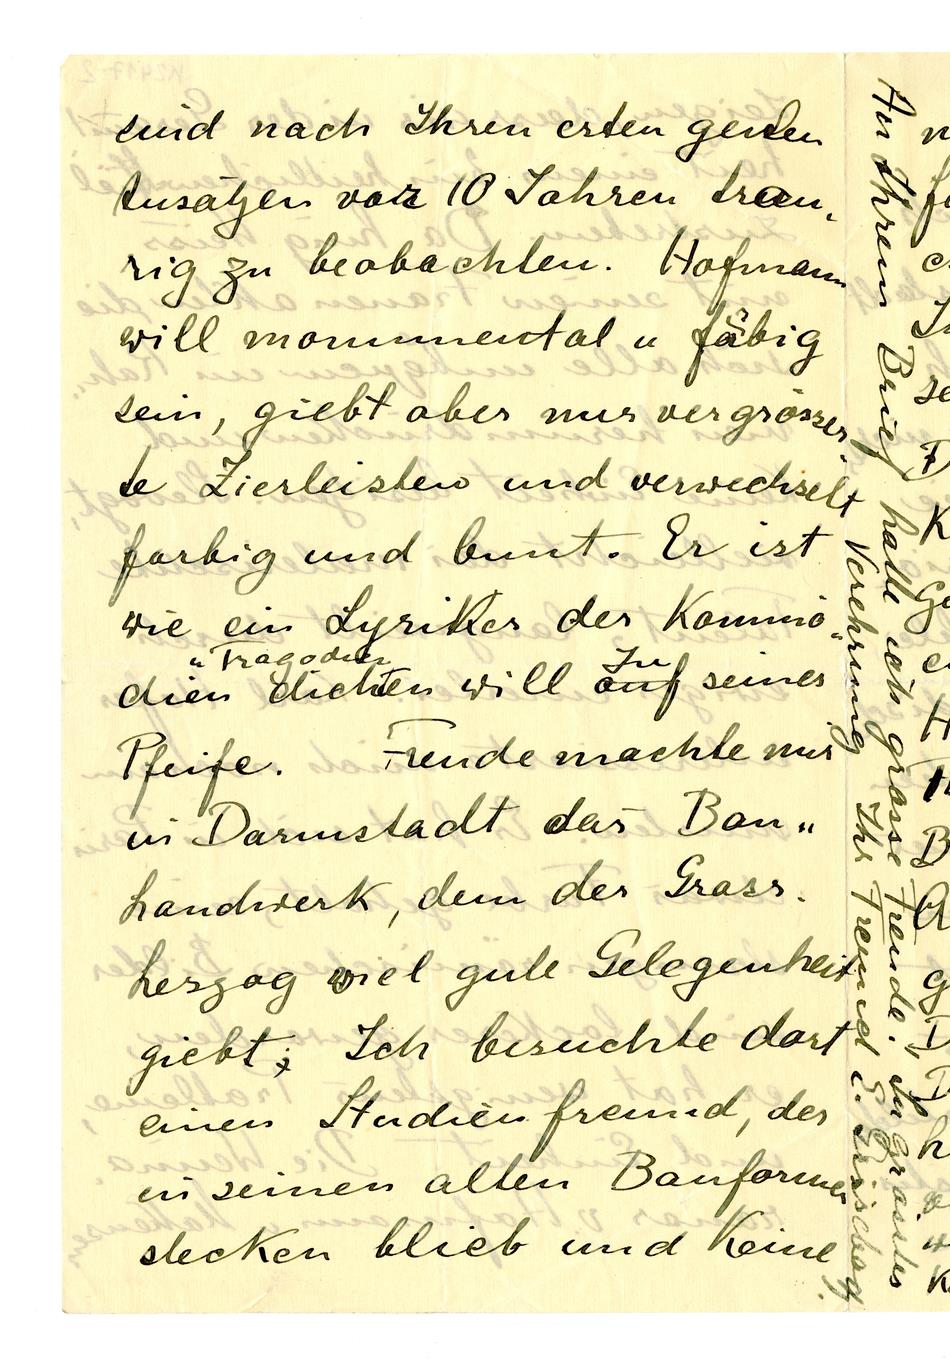 sind nach Ihren ersten guten
Ansätzen vor 10 Jahren trau„
rig zu beobachten. Hofmann
will monumental u farbig
sein, giebt aber nur vergrösser„
te Zierleisten und verwechselt
farbig und bunt. Er ist
wie ein Lyriker der Kommö„
dien
u Tragödien
dichten will auf
Zu
seiner
Pfeife. Freude machte mir
in Darmstadt das Bau„
handwerk, dem der Gross.
herzog viel gute Gelegenheit
giebt; Ich besuchte dort
einen Studienfreund, der
in seinen alten Bauformen
stecken blieb und Keine
An Ihrem Brief hatte ich grosse Freude. In
Verehrung Ihr Freund E.